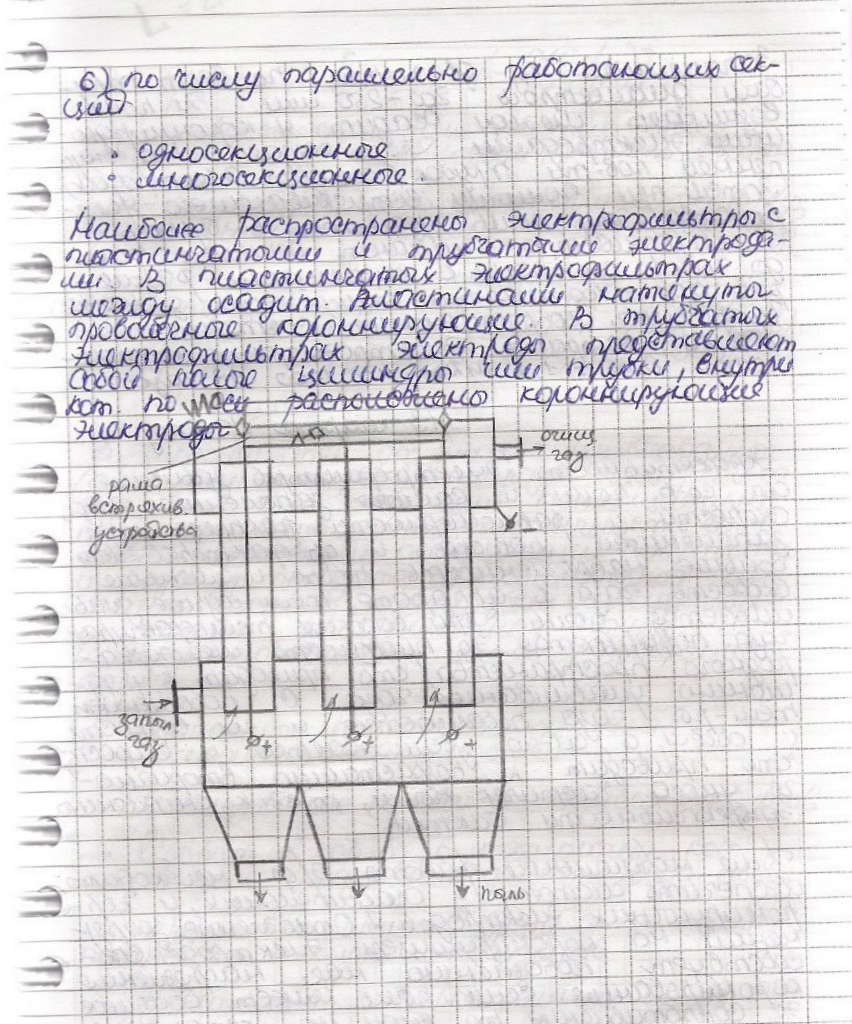 6) по числу параллельно работающих сек-
ций
• односекционные
• многосекционные.
Наиболее распространены электрофильтры с
пластинчатыми и трубчатыми электрода-
ми. В пластинчатых электрофильтрах
между осадит. пластинами натянуты
проволочные коронирующие. В трубчатых
электрофильтрах электроды представляют
собой полые цилиндры или трубки, внутри
кот. по расположены коронирующие
электроды
очищ
газ
рама
встряхив.
устройства
-
запыл
газ
+
+
+
пыль